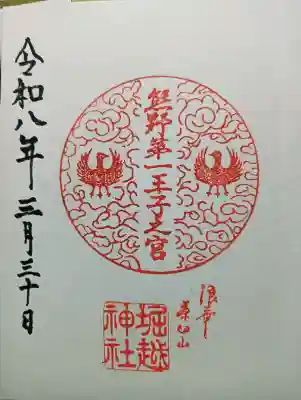 浪華
茶臼山
熊野第一王子之宮
堀越
神社
令和八年三月三十日